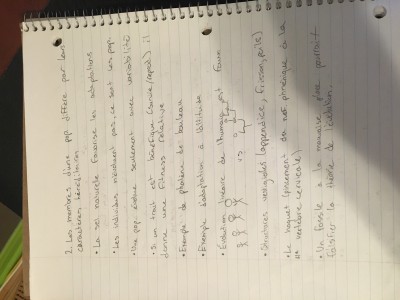 2. Les membres d'une pop diffère par leurs
caractères héréditaires
• La sel naturelle favorise les adaptations
• Les individus n'évoluent pas, ce sont les pop.
• Une pop. évolue seulement avec variabilité
• Si un trait est bénéfique (survie/repod) il
donne une fitness relative
• Exemple de phalène de bouleau
• Exemple d'adaptation à l'altitude
• Évolution linéaire de l'humain est faux
vs
• Structures vestigiales (appendice, frisson, poils)
• Le hoquet (pincement du nerf phrénique à la
4e vertèbre cervicale)
• Un fossile à la mauvaise place pourrait
falsifier la théorie de l'évolution.